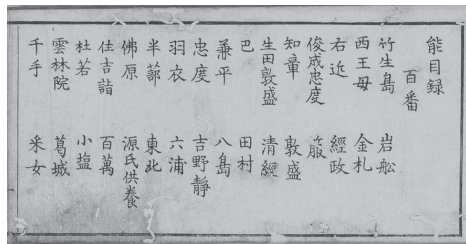 能目録
百番
竹生島 岩舩
西王母 金札
右近 經政
俊成忠度 箙
知章 敦盛
生田敦盛 清經
巴 田村
兼平 八島
忠度 吉野靜
羽衣 六浦
半蔀 東北
佛原 源氏供養
住吉詣 百萬
杜若 小塩
雲林院 葛城
千手 采女